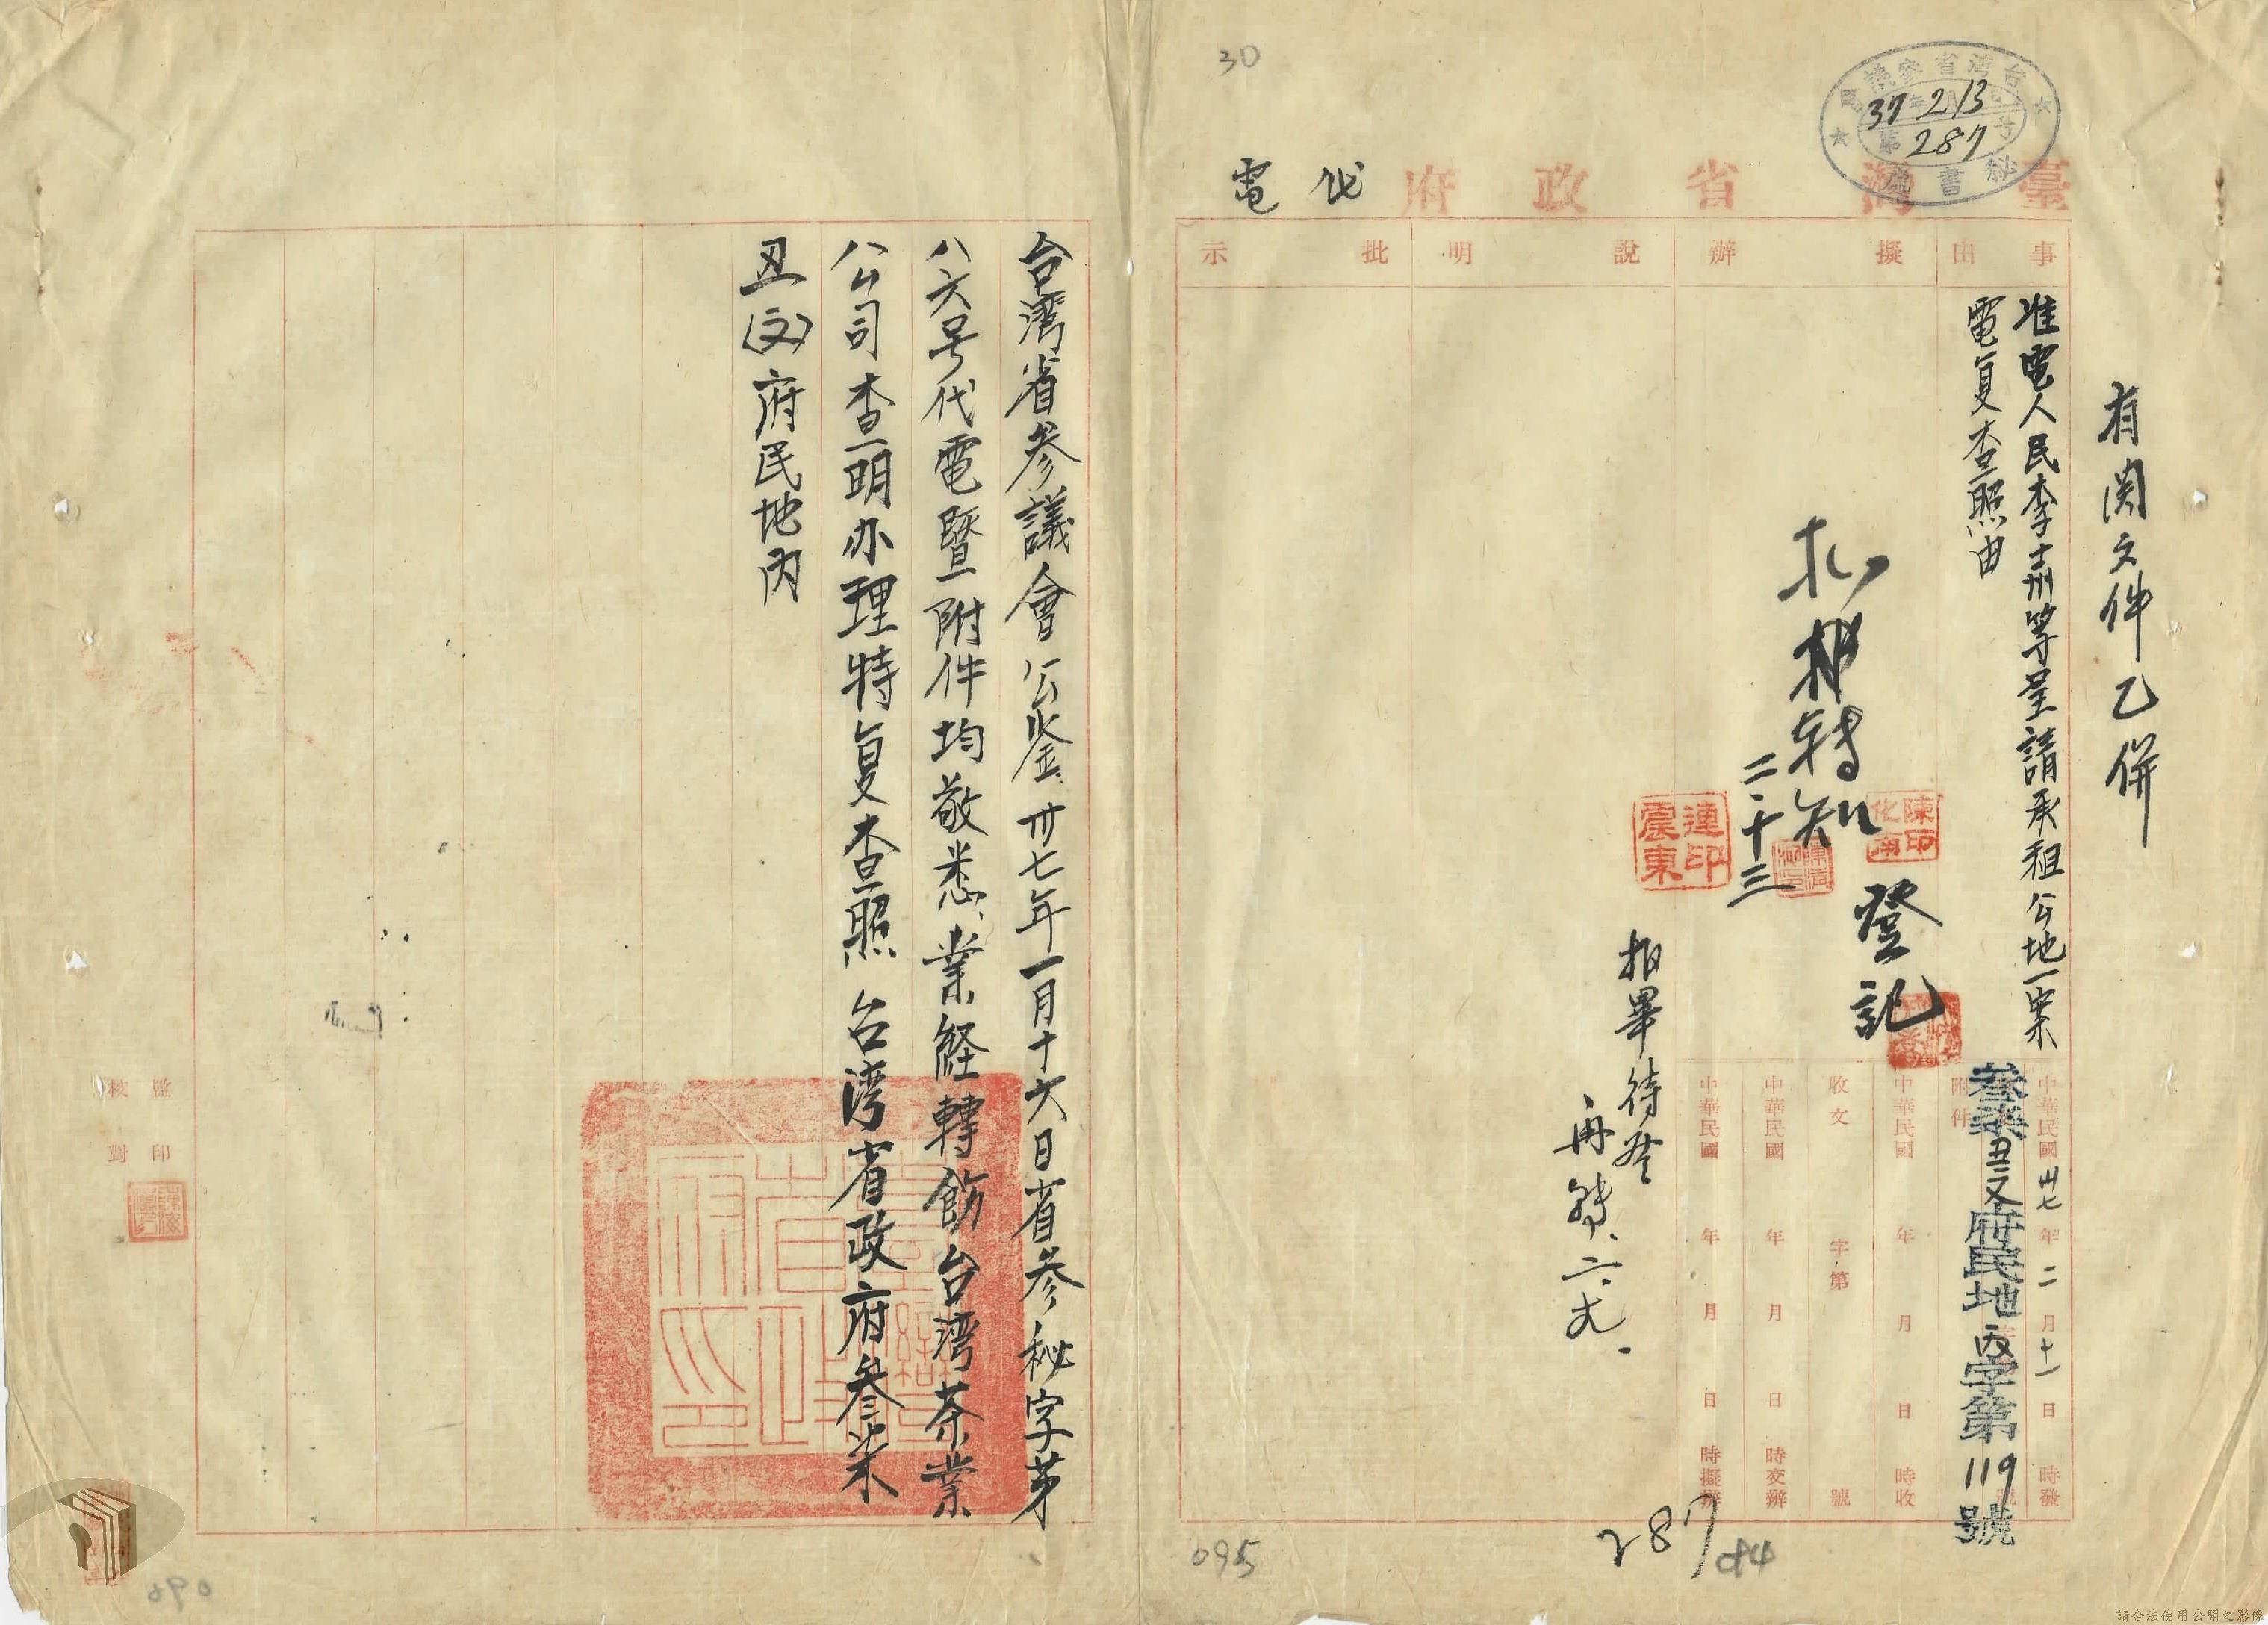 30
台灣省參議會
37年2月13日
第287号
秘書處
臺灣省政府代電
事由
擬辦
說明
批示
有関文件乙併
准電人民李士州等呈請承租公地一案
電复查照由
登記
二、十三
陳化南印
連震東印
报畢待发
再轉、
中華民國卅七年二月十一日時發
附件
叁柒丑文府民地丙字第119號
中華民國 年 月 日 時收
收文 字第 號
中華民國 年 月 日 時交辦
中華民國 年 月 日 時擬辦
287
084
095
台湾省参議會公鉴卅七年一月十六日省参秘字第
八六号代電暨附件均敬悉、業経轉飭台湾茶業
公司查明办理特复查照 台湾省政府叁柒
丑(文)府民地丙
監印
校對
090
請合法使用公開之影像